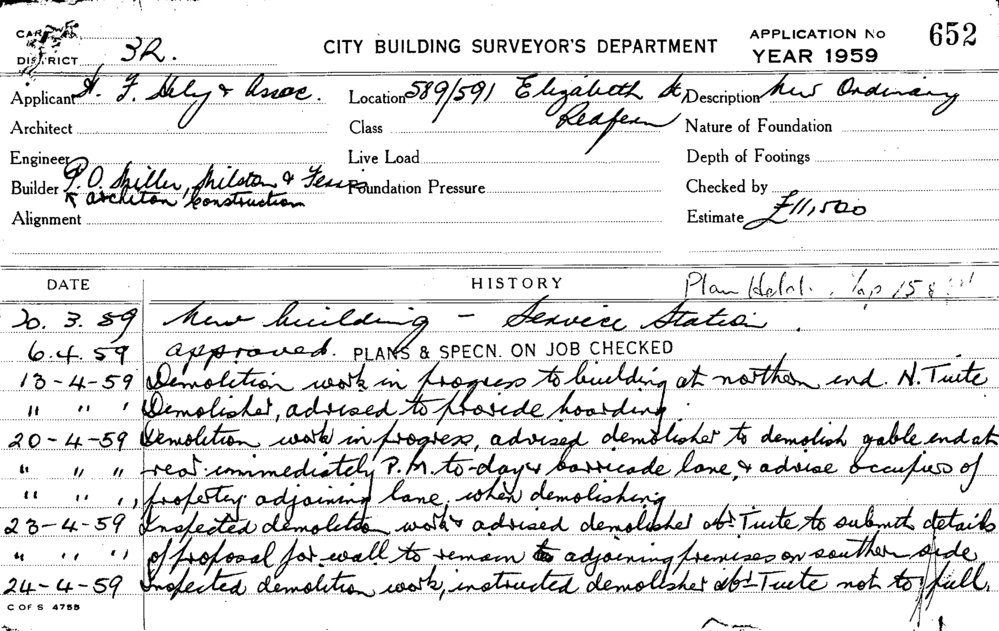 DISTRICT 3R.
CITY BUILDING SURVEYOR'S DEPARTMENT
APPLICATION No 652
YEAR 1959
Applicant H. F. Hely & Assoc.
Location 589/591 Elizabeth St,
Redfern
Description New Ordinary
Architect
Class
Nature of Foundation
Engineer
Live Load
Depth of Footings
Builder P. O. Miller, Milston & Ferris
Foundation Pressure
Checked by
Architon Construction
Alignment
Estimate £11,500
DATE
HISTORY
Plan Held.
20. 3. 59 New building - Service Station.
6. 4. 59 approved. PLANS & SPECN. ON JOB CHECKED
13-4-59 Demolition work in progress to building at northern end. N. Tuite
" " " Demolisher, advised to provide hoarding.
20-4-59 Demolition work in progress, advised demolisher to demolish gable end at
" " " rear immediately P.M. to-day & barricade lane, & advise occupiers of
" " " property adjoining lane when demolishing
23-4-59 Inspected demolition work & advised demolisher Mr Tuite to submit details
" " " of proposal for wall to remain to adjoining premises on southern side
24-4-59 Inspected demolition work, instructed demolisher Mr Tuite not to pull
C OF S 4755